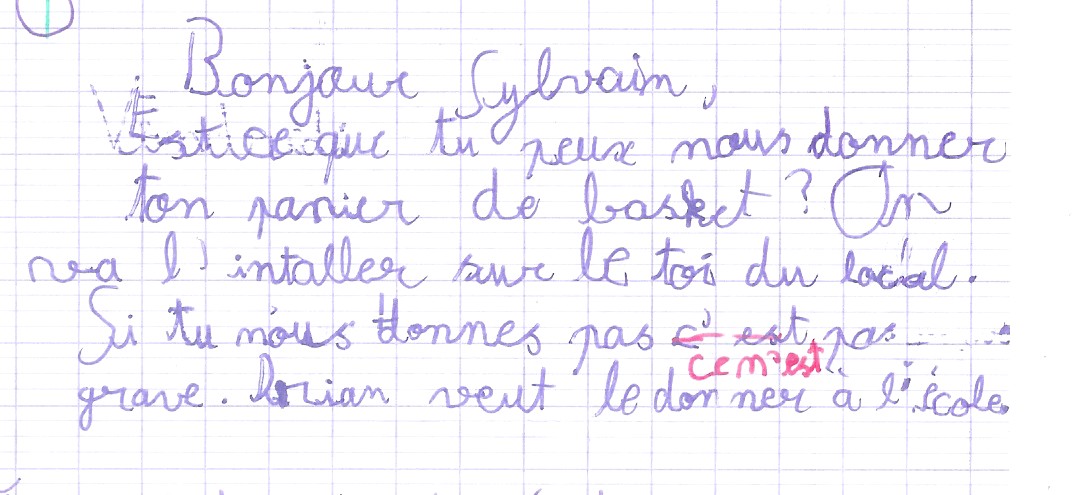 Bonjour Sylvain,
Est ce que tu peux nous donner
ton panier de basket ? On
va l'intaller sur le toi du local.
Si tu nous donnes pas c'est pas
ce n'est
grave. Brian veut le donner à l'école.